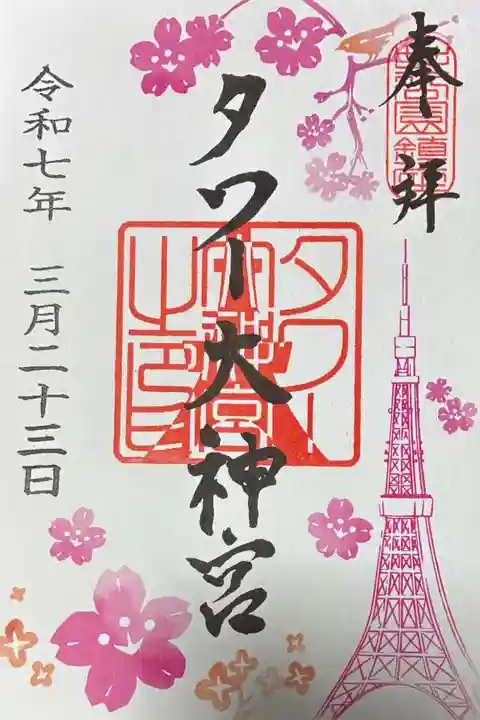 奉拝
タワー大神宮
令和七年 三月二十三日
タワー
大神宮
之印